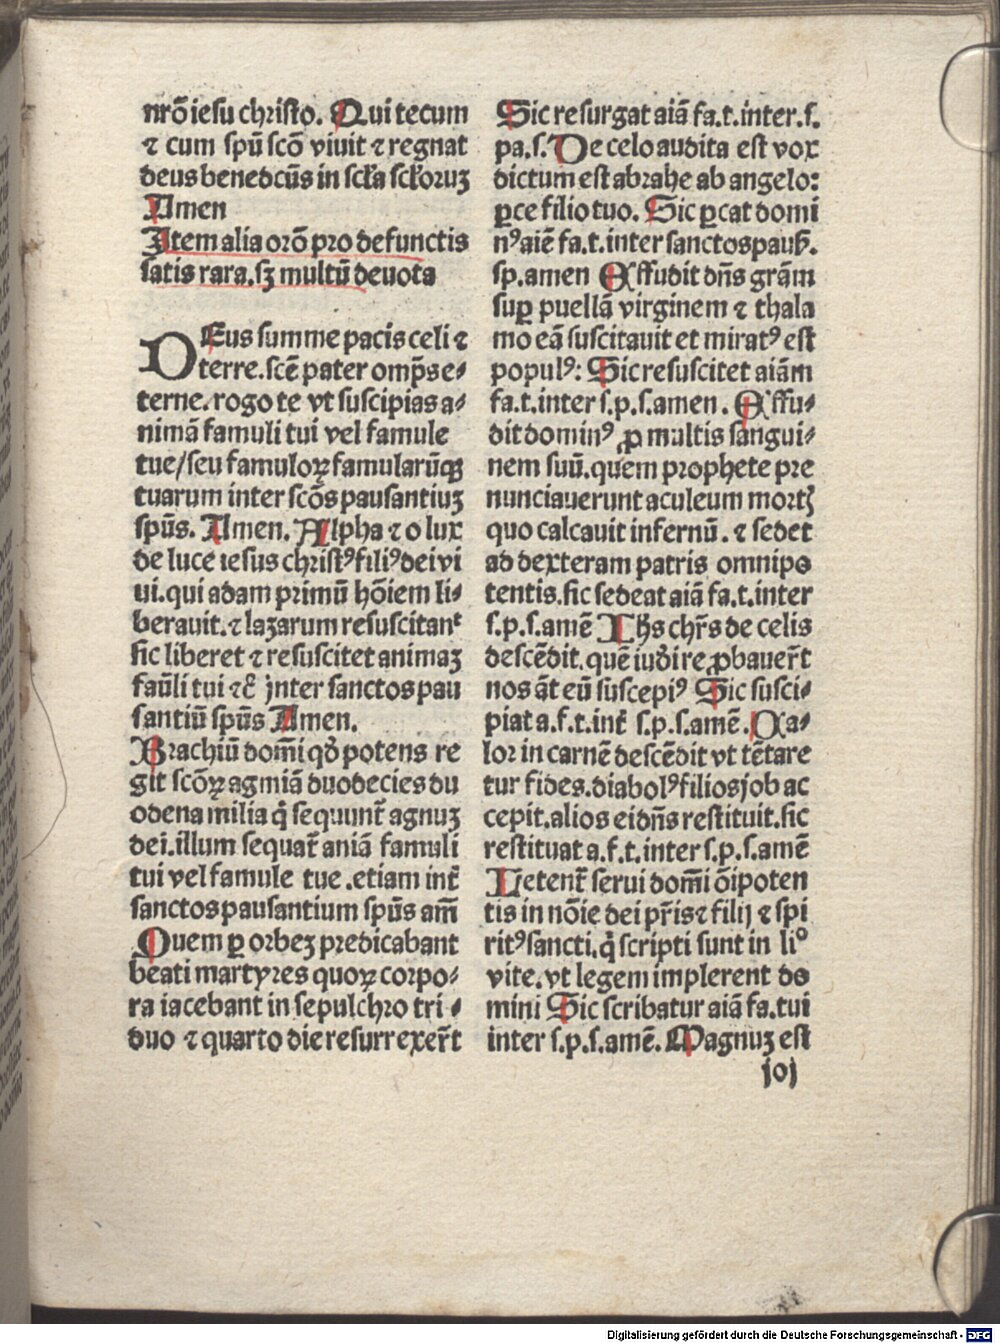 nrõ iesu christo. Qui tecum
⁊ cum spũ scõ viuit ⁊ regnat
deus benedcũs in scła scłoruꝫ
Amen
Item alia orõ pro defunctis
satis rara. sꝫ multũ deuota
DEus summe pacis celi ⁊
terre. scē pater omp̄s e⸗
terne. rogo te vt suscipias a⸗
nimã famuli tui vel famule
tue/seu famuloꝝ famularũqꝫ
tuarum inter scõs pausantiuꝫ
spũs. Amen. Alpha ⁊ o lux
de luce iesus christꝰ filiꝰ dei vi
ui. qui adam primũ hõiem li⸗
berauit. ⁊ lazarum resuscitant
sic liberet ⁊ resuscitet animaꝫ
faũli tui ⁊c̃ jnter sanctos pau
santiũ spũs Amen.
Brachiũ dom̃i qđ potens re
git scõꝝ agmiã duodecies du
odena milia q̃ sequunt̃ agnuꝫ
dei. illum sequat̃ aniã famuli
tui vel famule tue .etiam int̃
sanctos pausantium spũs am̃
Quem ꝑ orbeꝫ predicabant
beati martyres quoꝝ corpo⸗
ra iacebant in sepulchro tri⸗
duo ⁊ quarto die resurrexer̃t
Sic resurgat aiã fa.t.inter.s.
pa.s. De celo audita est vox
dictum est abrahe ab angelo:
ꝑce filio tuo. Sic ꝑcat domi
nꝰ aiē fa.t.inter sanctos paus̃.
sp.amen Effudit dñs grãm
suꝑ puellã virginem ⁊ thala
mo eã suscitauit et miratꝰ est
populꝰ: Sic resuscitet aiãm
fa.t.inter s.p.s.amen. Effu⸗
dit dominꝰ ꝓ multis sangui⸗
nem suũ. quem prophete pre
nunciauerunt aculeum mortꝭ
quo calcauit infernũ. ⁊ sedet
ad dexteram patris omnipo
tentis. sic sedeat aiã fa.t.inter
s.p.s.amē Ihs̃ chr̃s de celis
descēdit. quē iuđi reꝓbauer̃t
nos ãt eũ suscepiꝰ Sic susci⸗
piat a.f.t.int̃ s.p.s.amē. Ca⸗
lor in carnē descēdit vt tētare
tur fides. diabolꝰ filios job ac
cepit. alios ei dñs restituit. sic
restituat a.f.t.inter s.p.s.amē
Letent̃ serui dom̃i õipoten
tis in nõie dei pr̃is ⁊ filij ⁊ spi
ritꝰ sancti. q̃ scripti sunt in li°
vite. vt legem implerent do
mini Sic scribatur aiã fa.tui
inter s.p.s.amē. Magnuꝫ est
joj
Digitalisierung gefördert durch die Deutsche Forschungsgemeinschaft - DFG